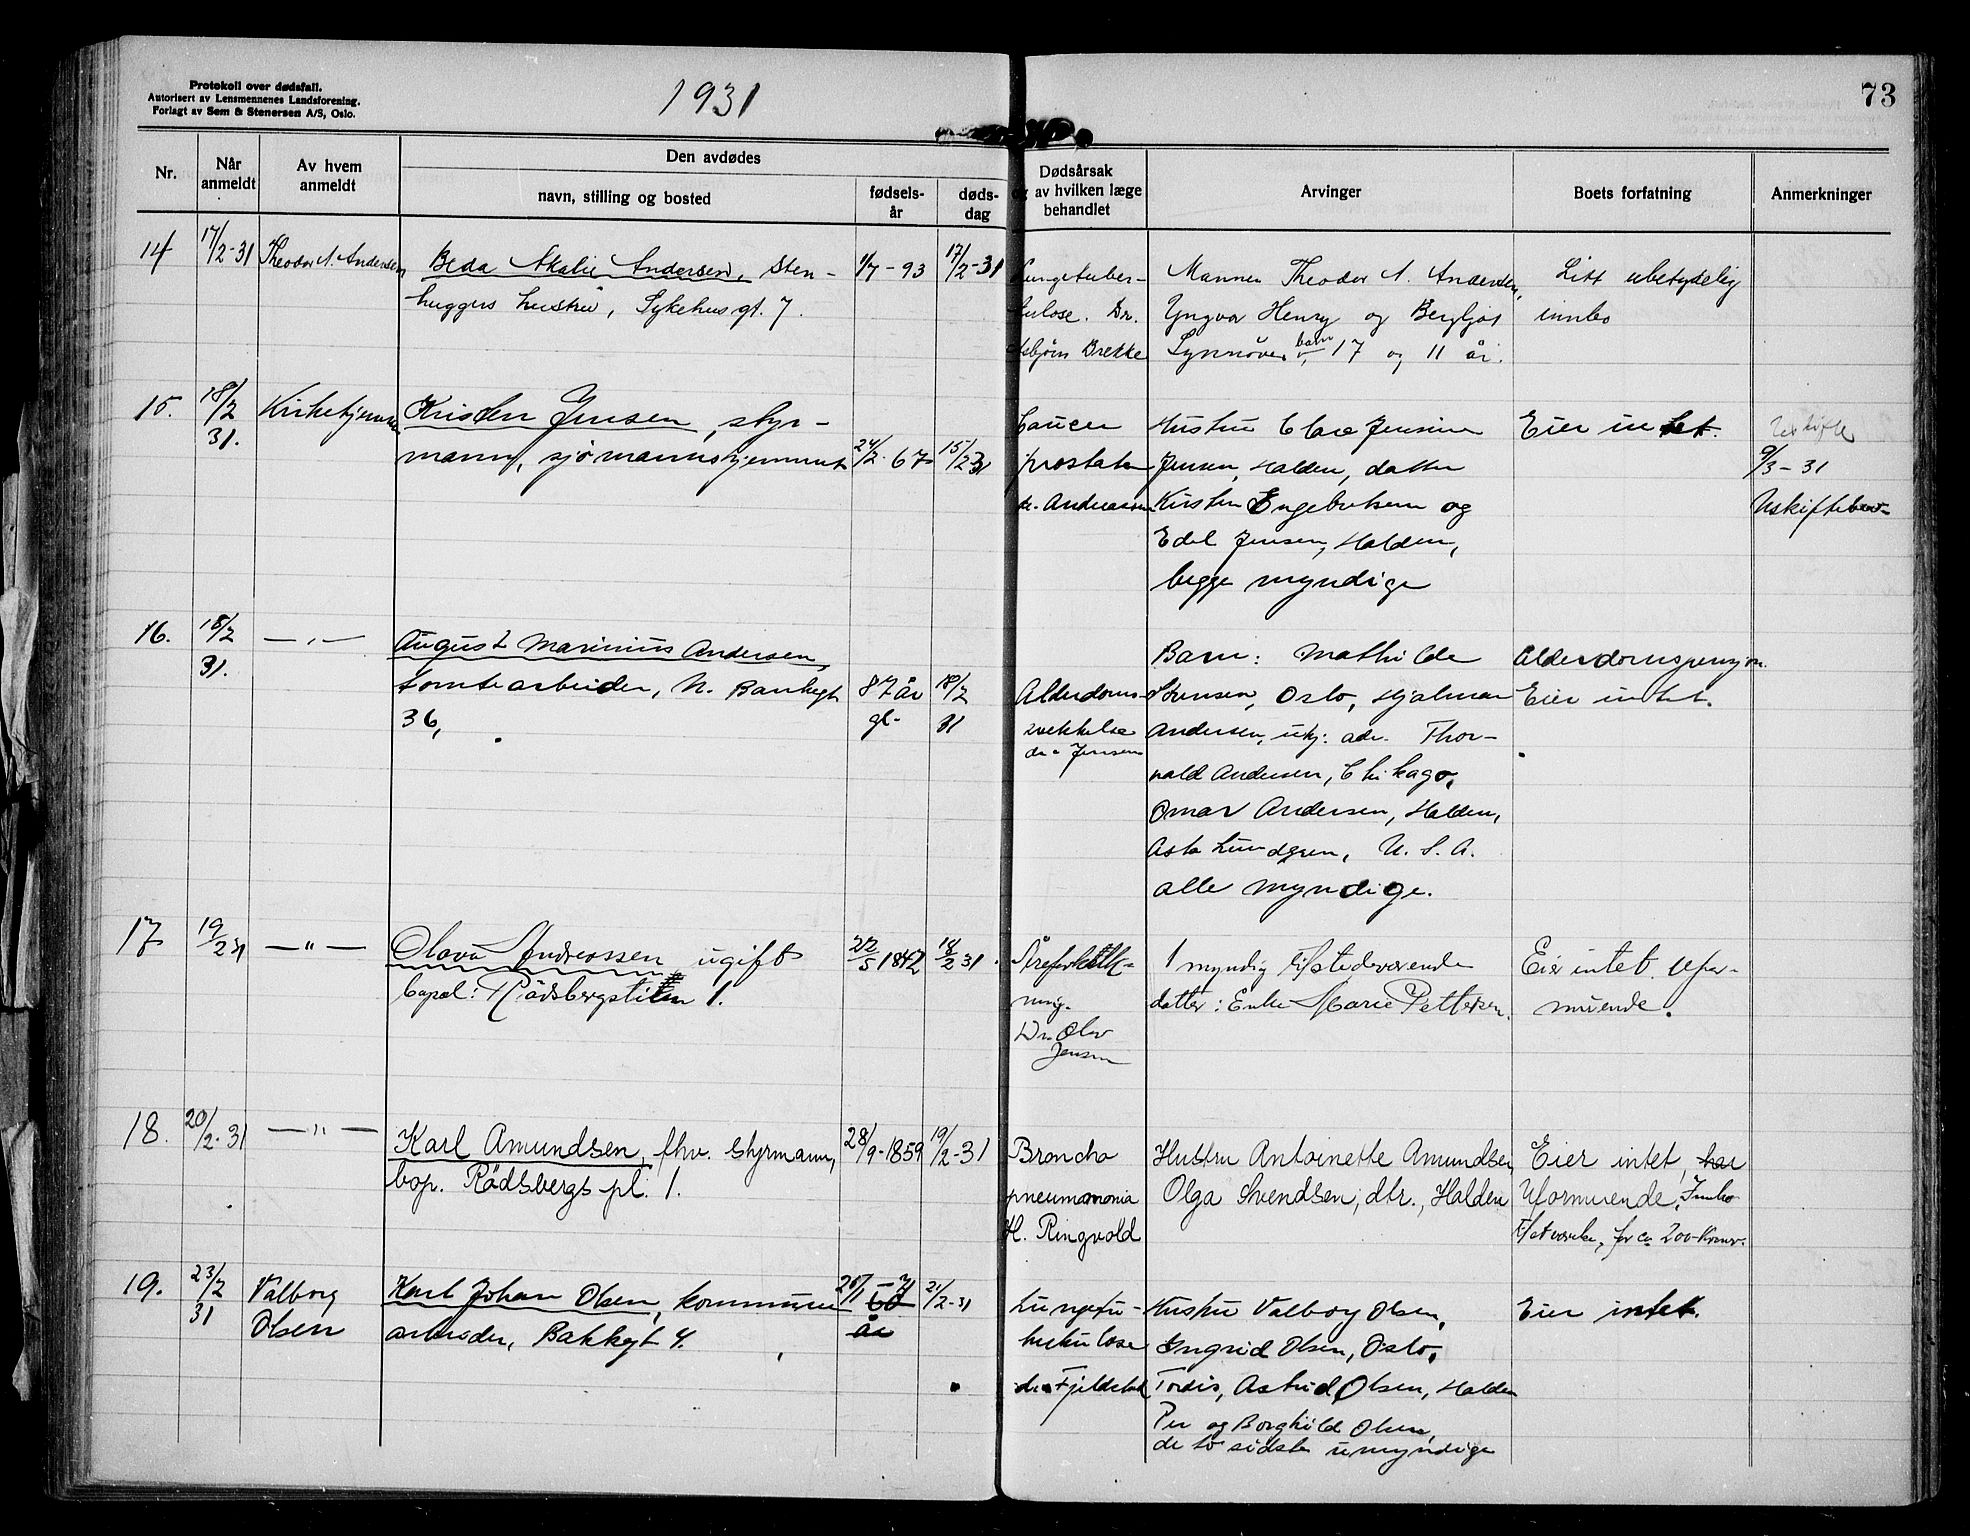 Protokoll over dødsfall.
Autorisert av Lensmennenes Landsforening.
Forlagt av Sem & Stenersen A/S, Oslo.
1931
73
Nr.
Når anmeldt
Av hvem anmeldt
Den avdødes
navn, stilling og bosted
fødsels-år
døds-dag
Dødsårsak
og av hvilken læge
behandlet
Arvinger
Boets forfatning
Anmerkninger
14 17/2-31 Theodor A. Andersen Beda Akalie Andersen, sten- 1/7-93 17/2-31 Lungetuber- Mannen Theodor A. Andersen, Litt ubetydelig
huggers hustru, Sykehusgt. 7. kulose. Dr. Yngvar Henry og Bergljot innbo
Asbjørn Brekke Synnøve barn 17 og 11 år.
15. 18/2 Kirketjeneren Kristen Jensen, styr- Cancer Hustru Clare Jensine Eier intet. Uskifte
31. mann, sjømannshjemmet 24/2-67 15/2 31 prostatae Jensen, Halden, datter 9/3-31
dr. Andreassen Kirsten Engebretsen og Uskiftebev-
Edel Jensen, Halden,
begge myndige
16. 18/2 —"— August Marinius Andersen, Barn: Mathilde Alderdomspensjon.
31. tomtearbeider, N. Bankegt 87 år 18/2 Alderdoms- Sørensen, Oslo, Hjalmar Eier intet.
36, gl. 31 svekkelse Andersen, ukj. adr. Thor-
dr. Jensen
vald Andersen, Chikago,
Omar Andersen, Halden,
Asta Lundgren, U.S.A.
alle myndige.
17 19/2 31 —"— Olava Andreassen ugift 22/5 1842 18/2 31. Åreforkalk- 1 myndig tilstedeværende Eier intet. Ufor-
bopæl: Rødsbergstien 1. ning. datter: Enke Marie Pettersen. muende.
Dr. Olav
Jensen
18. 20/2-31 —"— Karl Amundsen, fhv. styrmann, 28/9-1859 19/2-31 Broncho Hustru Antoinette Amundsen Eier intet, har
bop. Rødsbergs pl. 1. pneumonia Olga Svendsen, dtr., Halden Uformuende, Innbo
H. Ringvold for ca 200 kroner.
19. 23/2 Valborg Karl Johan Olsen, kommune 20/1-71 60 21/2-31 Lungetu- Hustru Valborg Olsen, Eier intet.
31 Olsen arbeider, Bakkegt 4. år berkulose Ingrid Olsen, Oslo,
dr. Fjeldstad Tordis, Astrid Olsen, Halden
Per og Borghild Olsen,
de to sidste umyndige